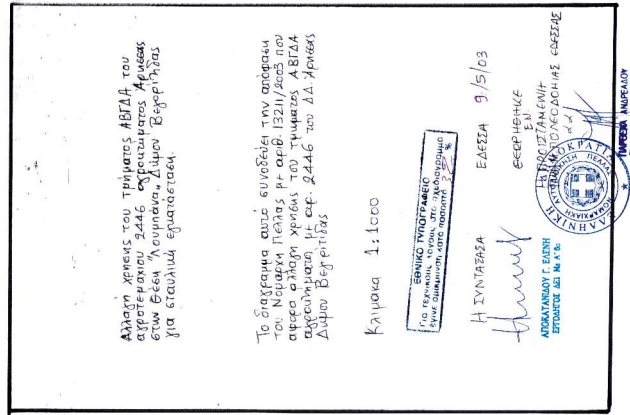 Αλλαγή χρήσης του τμήματος ΑΒΓΔΑ του
αγροτεμαχίου 2446 αγροκτήματος Άρνισσας
στην θέση "Λουμπάνα" Δήμου Βεγορίτιδας
για σταυλική εγκατάσταση.
Το διάγραμμα αυτό συνοδεύει την απόφαση
του Νομάρχη Πέλλας με αριθ. 13211/2003 που
αφορά αλλαγή χρήσης του τμήματος ΑΒΓΔΑ
αγροκτήματος με αρ. 2446 του ΔΔ. Άρνισσας
Δήμου Βεγορίτιδας
Κλίμακα 1:1000
ΕΘΝΙΚΟ ΤΥΠΟΓΡΑΦΕΙΟ
Για τεχνικούς λόγους στο σχεδιάγραμμα
έγινε σμίκρυνση κατά ποσοστό %
Η ΣΥΝΤΑΞΑΣΑ
ΑΠΟΚΑΤΑΝΙΔΟΥ Γ. ΕΛΕΝΗ
ΕΡΓΟΔΗΓΟΣ ΔΕΙ Με Α' βα
ΕΔΕΣΣΑ 9/5/03
ΘΕΩΡΗΘΗΚΕ
Η ΠΡΟΪΣΤΑΜΕΝΗ
ΠΟΛΕΟΔΟΜΙΑΣ ΕΔΕΣΣΑΣ
ΕΛΛΗΝΙΚΗ ΔΗΜΟΚΡΑΤΙΑ
ΝΟΜΑΡΧΙΑΚΗ ΑΥΤΟΔΙΟΙΚΗΣΗ ΠΕΛΛΑΣ
ΑΝΔΡΕΑΔΟΥ